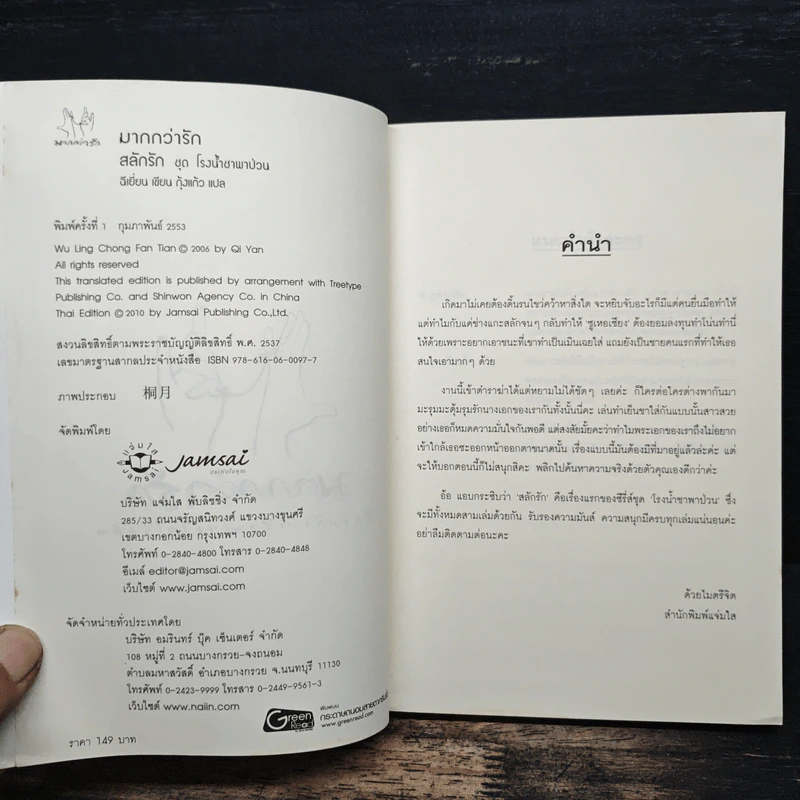 มากกว่ารัก
มากกว่ารัก
สลักรัก ชุด โรงน้ำชาพาป่วน
ฉีเยี่ยน เขียน กุ้งแก้ว แปล
พิมพ์ครั้งที่ 1 กุมภาพันธ์ 2553
Wu Ling Chong Fan Tian © 2006 by Qi Yan
All rights reserved
This translated edition is published by arrangement with Treetype
Publishing Co. and Shinwon Agency Co. in China
Thai Edition © 2010 by Jamsai Publishing Co.,Ltd.
สงวนลิขสิทธิ์ตามพระราชบัญญัติลิขสิทธิ์ พ.ศ. 2537
เลขมาตรฐานสากลประจำหนังสือ ISBN 978-616-06-0097-7
ภาพประกอบ 桐月
จัดพิมพ์โดย
แจ่มใส
JAMSAI
Jamsai
บริษัท แจ่มใส พับลิชชิ่ง จำกัด
285/33 ถนนจรัญสนิทวงศ์ แขวงบางขุนศรี
เขตบางกอกน้อย กรุงเทพฯ 10700
โทรศัพท์ 0-2840-4800 โทรสาร 0-2840-4848
อีเมล์ editor@jamsai.com
เว็บไซต์ www.jamsai.com
จัดจำหน่ายทั่วประเทศโดย
บริษัท อมรินทร์ บุ๊ค เซ็นเตอร์ จำกัด
108 หมู่ที่ 2 ถนนบางกรวย-จงถนอม
ตำบลมหาสวัสดิ์ อำเภอบางกรวย จ.นนทบุรี 11130
โทรศัพท์ 0-2423-9999 โทรสาร 0-2449-9561-3
เว็บไซต์ www.naiin.com
Green Read
พิมพ์บน
กระดาษถนอมสายตากรีนรี้ด
www.greenread.com
ราคา 149 บาท
คำนำ
เกิดมาไม่เคยต้องดิ้นรนไขว่คว้าหาสิ่งใด จะหยิบจับอะไรก็มีแต่คนยื่นมือทำให้
แต่ทำไมกับแค่ช่างแกะสลักจนๆ กลับทำให้ 'ซูเหอเซียง' ต้องยอมลงทุนทำโน่นทำนี่
ให้ด้วยเพราะอยากเอาชนะที่เขาทำเป็นเมินเฉยใส่ แถมยังเป็นชายคนแรกที่ทำให้เธอ
สนใจเอามากๆ ด้วย
งานนี้เข้าตำราฆ่าได้แต่หยามไม่ได้ชัดๆ เลยค่ะ ก็ใครต่อใครต่างพากันมา
มะรุมมะตุ้มรุมรักนางเอกของเรากันทั้งนั้นนี่คะ เล่นทำเย็นชาใส่กันแบบนั้นสาวสวย
อย่างเธอก็หมดความมั่นใจกันพอดี แต่สงสัยมั้ยคะว่าทำไมพระเอกของเราถึงไม่อยาก
เข้าใกล้เธอซะออกหน้าออกตาขนาดนั้น เรื่องแบบนี้มันต้องมีที่มาอยู่แล้วล่ะค่ะ แต่
จะให้บอกตอนนี้ก็ไม่สนุกสิคะ พลิกไปค้นหาความจริงด้วยตัวคุณเองดีกว่าค่ะ
อ้อ แอบกระซิบว่า 'สลักรัก' คือเรื่องแรกของซีรี่ส์ชุด 'โรงน้ำชาพาป่วน' ซึ่ง
จะมีทั้งหมดสามเล่มด้วยกัน รับรองความมันส์ ความสนุกมีครบทุกเล่มแน่นอนค่ะ
อย่าลืมติดตามต่อนะคะ
ด้วยไมตรีจิต
สำนักพิมพ์แจ่มใส